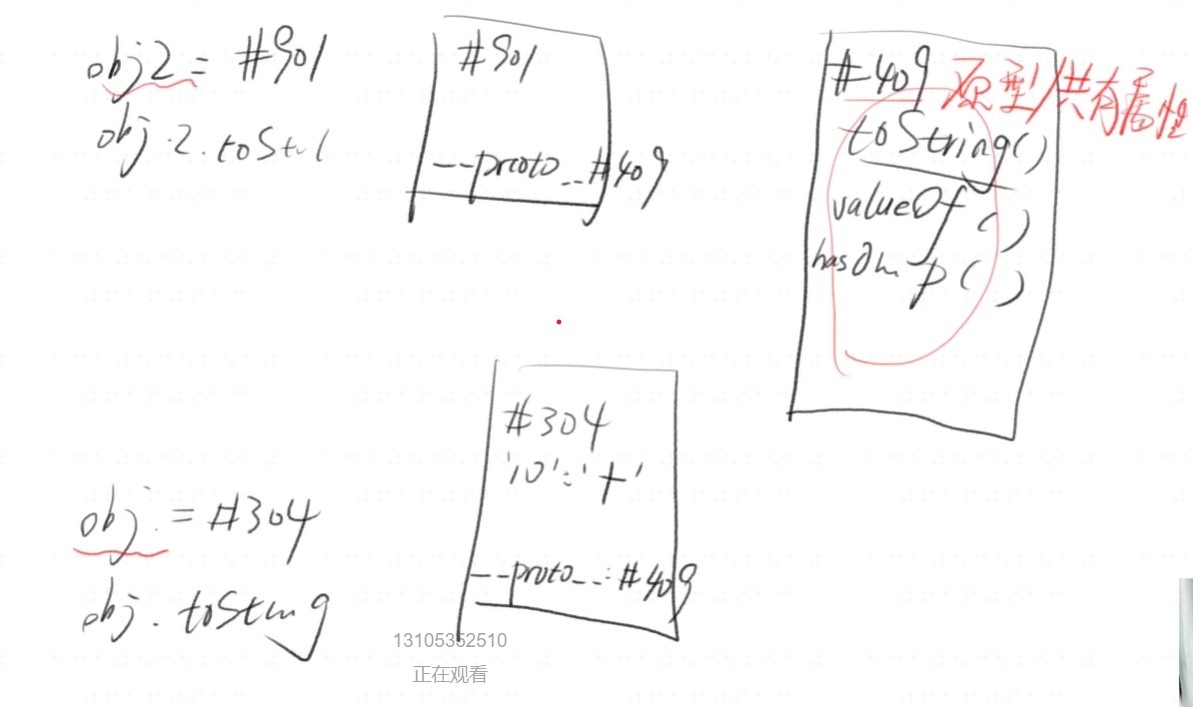 obj2 = #901
obj.2.toSt
#901
--proto--#409
#409
原型/共有属性
toString()
valueOf()
hasOwnP()
#304
'10':'+'
--proto--:#409
obj = #304
obj.toString
13105352510
正在观看